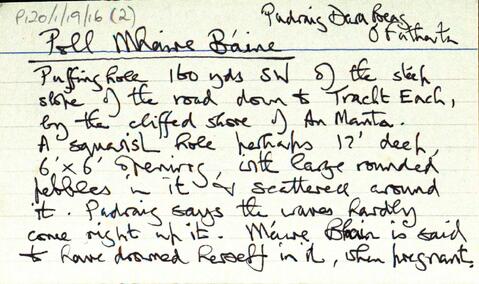 P120/1/19/16 (2)
Padraig Dara Beag
O Fatharta
Poll Mháire Báine
Puffing hole 160 yds SW of the steep
slope of the road down to Tracht Each,
by the cliffed shore of An Manta.
A squarish hole perhaps 12' deep,
6' x 6' opening, with large rounded
pebbles in it & scattered around
it. Padraig says the waves hardly
come right up it. Máire Bháin is said
to have drowned herself in it, when pregnant.